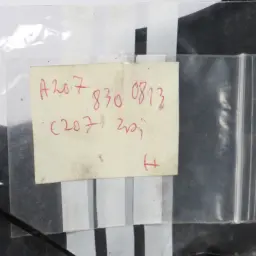 A207
830 0813
C207 2pi
H